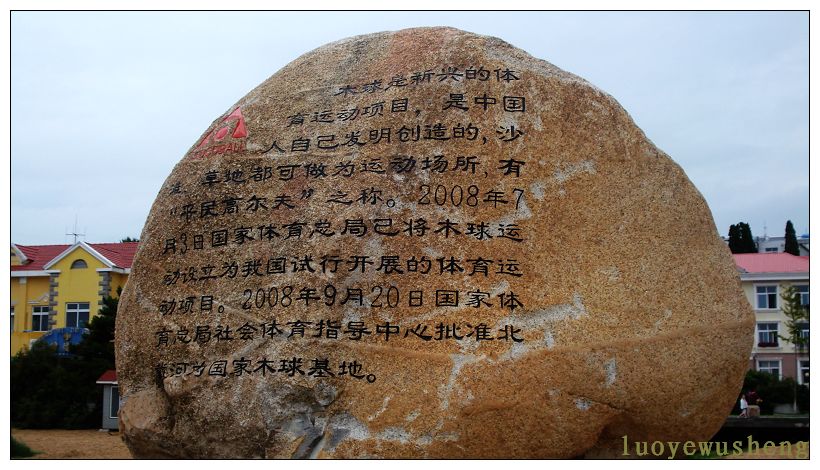 木球是新兴的体
育运动项目，是中国
人自己发明创造的，沙
滩、草地都可做为运动场所，有
“平民高尔夫”之称。2008年7
月3日国家体育总局已将木球运
动设立为我国试行开展的体育运
动项目。2008年9月20日国家体
育总局社会体育指导中心批准北
戴河为国家木球基地。
luoyewusheng